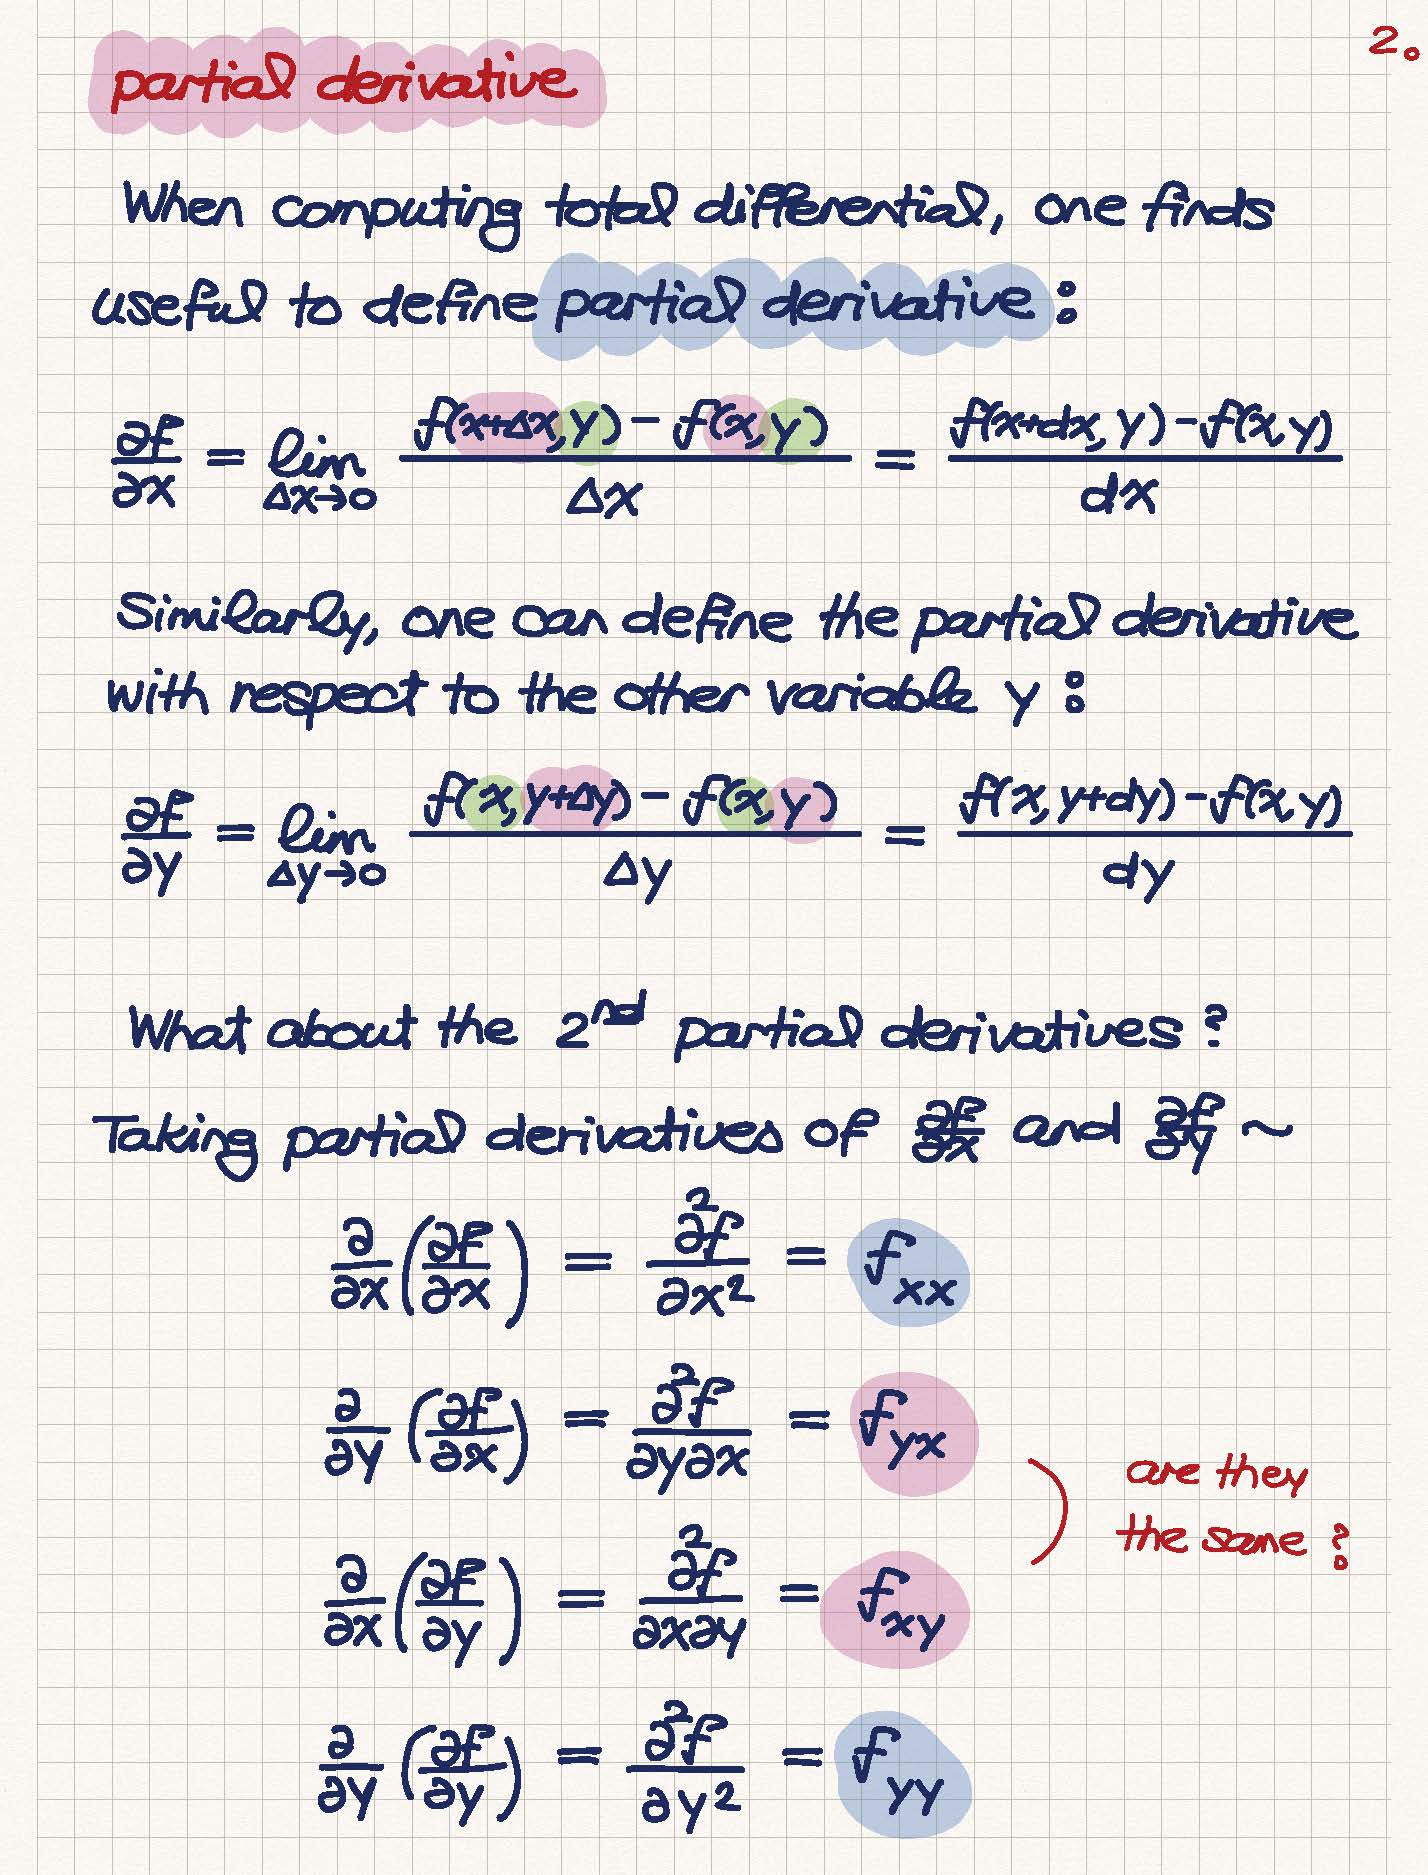 2.
partial derivative
When computing total differential, one finds
useful to define partial derivative :
∂f/∂x = lim Δx→0 (f(x+Δx, y) − f(x, y))/Δx = (f(x+dx, y) − f(x, y))/dx
Similarly, one can define the partial derivative
with respect to the other variable y :
∂f/∂y = lim Δy→0 (f(x, y+Δy) − f(x, y))/Δy = (f(x, y+dy) − f(x, y))/dy
What about the 2nd partial derivatives ?
Taking partial derivatives of ∂f/∂x and ∂f/∂y ~
∂/∂x (∂f/∂x) = ∂²f/∂x² = f_xx
∂/∂y (∂f/∂x) = ∂²f/∂y∂x = f_yx
are they
the same ?
∂/∂x (∂f/∂y) = ∂²f/∂x∂y = f_xy
∂/∂y (∂f/∂y) = ∂²f/∂y² = f_yy